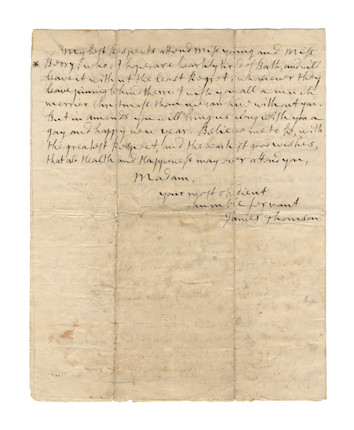 My best Respects attend Miss Young and Miss
* Berry, who, I hope, are heartily tir'd of Bath, and will
leave it without the least Regret, whatever they
leave pining behind them. I wish you all a much
merrier Christmass than we can have without you.
But in amends you will bring us along with you a
gay and happy new year. Believe me to be, with
the greatest Respect, and the heartiest good wishes,
that all Health and Happiness may ever attend you,
Madam,
your most obedient
humble servant
James Thomson